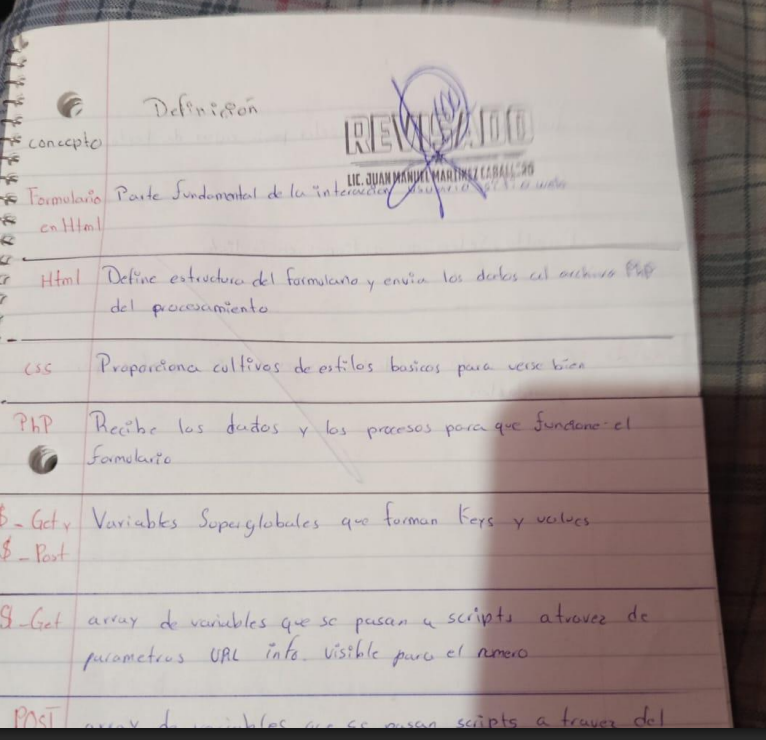 Definición
concepto
REVISADO
LIC. JUAN MANUEL MARTINEZ CABALLERO
Formulario Parte fundamental de la interaccion
en Html
Html Define estructura del formulario y envia los datos al archivo PhP
del procesamiento
css Proporciona coltivos de estilos basicos para verse bien
PhP Recibe los datos y los procesos para que funcione el
formulario
$_Get y Variables Superglobales que forman Keys y values
$_Post
$_Get array de variables que se pasan a scripts atravez de
parametros URL info. visible para el numero
POST array de variables que se pasan scripts a travez del